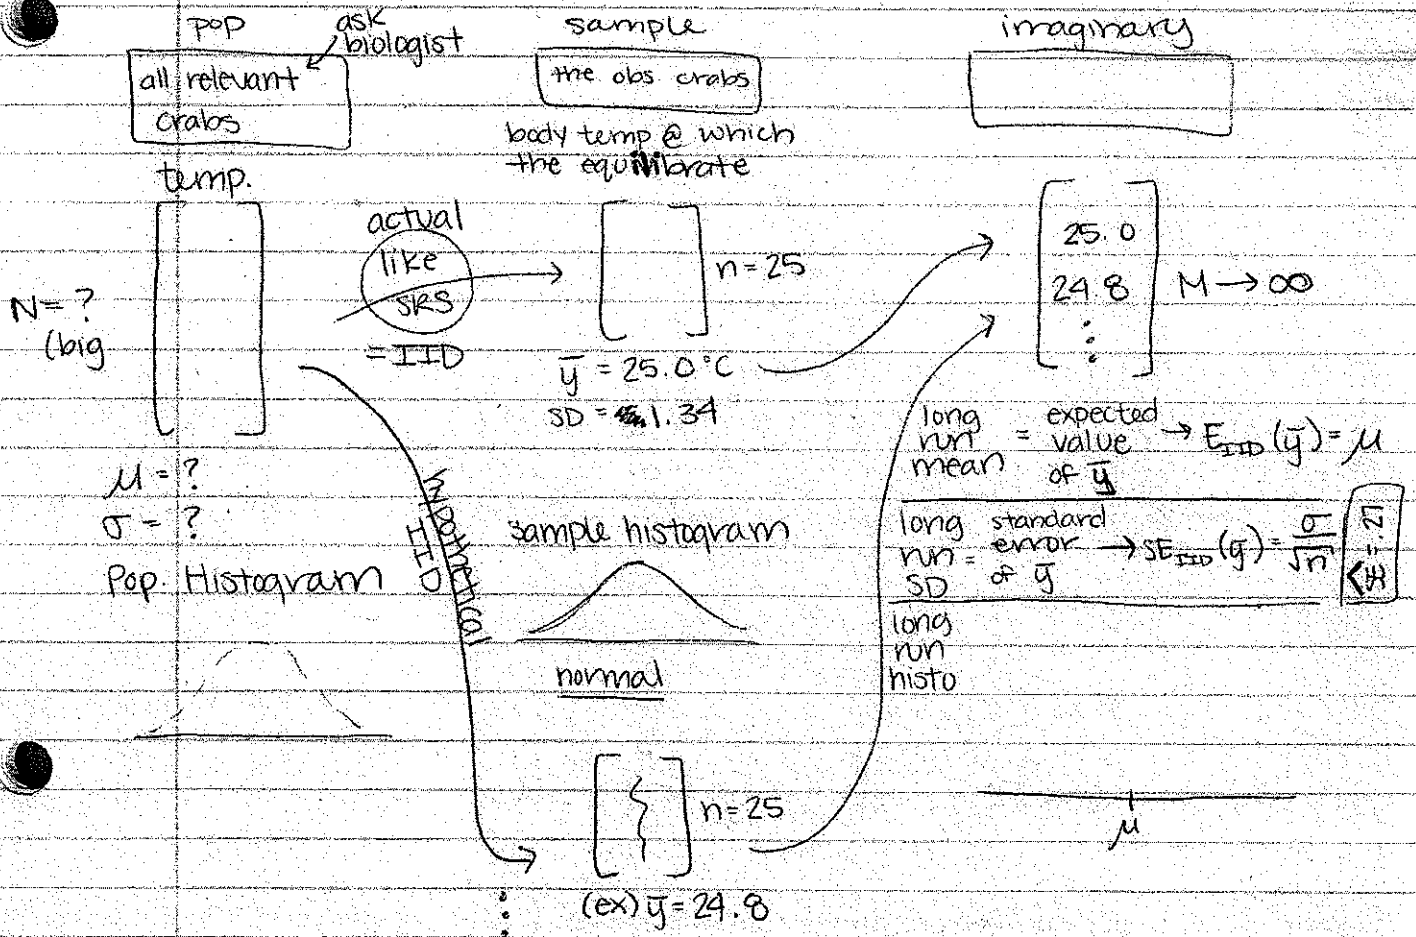 pop
ask
biologist
all relevant
crabs
temp.
N = ?
(big
μ = ?
σ = ?
Pop. Histogram
actual
like
SRS
= IID
hypothetical
IID
sample
the obs crabs
body temp @ which
the equilibrate
n = 25
y̅ = 25.0 °C
SD = 1.34
sample histogram
normal
n = 25
(ex) y̅ = 24.8
imaginary
25.0
24.8
⋮
M → ∞
long
run
mean
=
expected
value
of y̅
→ E_IID (y̅) = μ
long
run
SD
=
standard
error
of y̅
→ SE_IID (y̅) = σ/√n
= .27
long
run
histo
μ